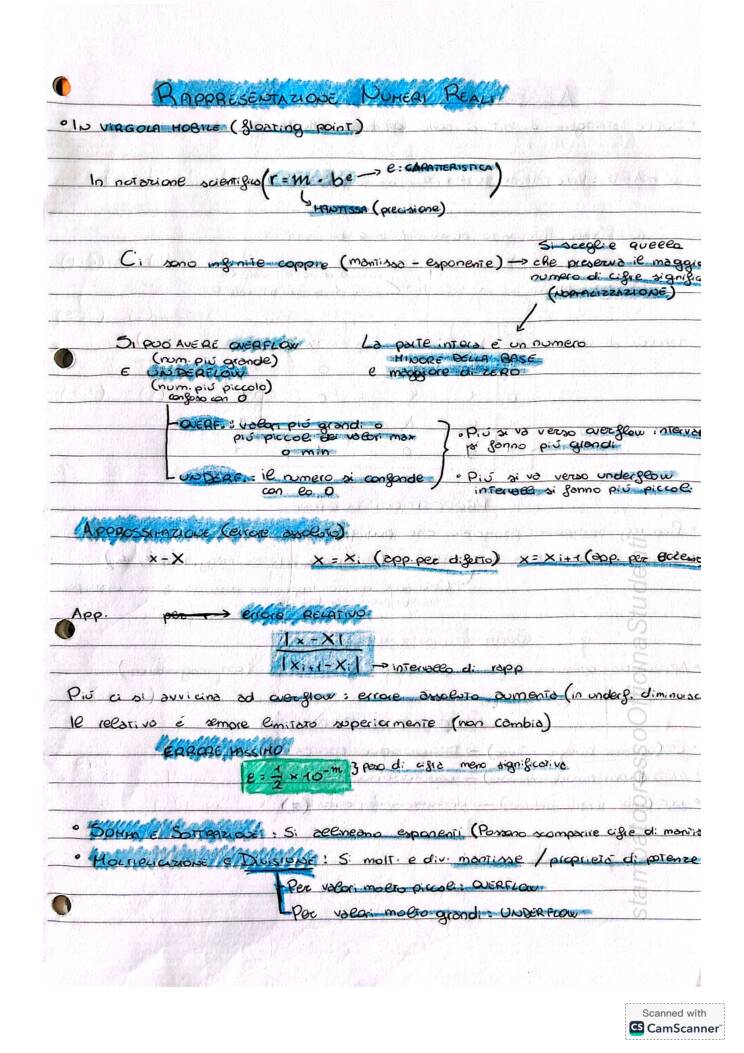 RAPPRESENTAZIONE NUMERI REALI
• IN VIRGOLA MOBILE (floating point)
In notazione scientifica (r = m · bᵉ → e: CARATTERISTICA)
↳ MANTISSA (precisione)
Ci sono infinite coppie (mantissa - esponente) → Si sceglie quella
che preserva il maggio
numero di cifre signific
(NORMALIZZAZIONE)
SI PUÒ AVERE OVERFLOW
(num. più grande)
E UNDERFLOW
(num. più piccolo)
confuso con 0
La parte intera è un numero
MINORE DELLA BASE
e maggiore di ZERO
OVERF.: valori più grandi o
più piccoli dei valori max
o min
UNDERF.: il numero si confonde
con lo 0
• Più si va verso overflow interva
si fanno più grandi
• Più si va verso underflow
intervalli si fanno più piccoli
APPROSSIMAZIONE (errore assoluto)
x - X X = Xi (app. per difetto) X = Xi+1 (app. per eccesso
App. → errore RELATIVO
|x - X|
|Xi+1 - Xi| → intervallo di rapp
Più ci si avvicina ad overflow: errore assoluto aumenta (in underf. diminuisc
Il relativo é sempre limitato superiormente (non cambia)
ERRORE MASSIMO
ε = 1/2 × 10⁻ᵐ } peso di cifra meno significativa
• SOMMA E SOTTRAZIONE: Si allineano esponenti (Possono scomparire cifre di mantis
• MOLTIPLICAZIONE E DIVISIONE: Si molt. e div. mantisse / proprietà di potenze
Per valori molto piccoli: OVERFLOW
Per valori molto grandi: UNDERFLOW
stampatopressoOfficinaStudenti
Scanned with
CS CamScanner